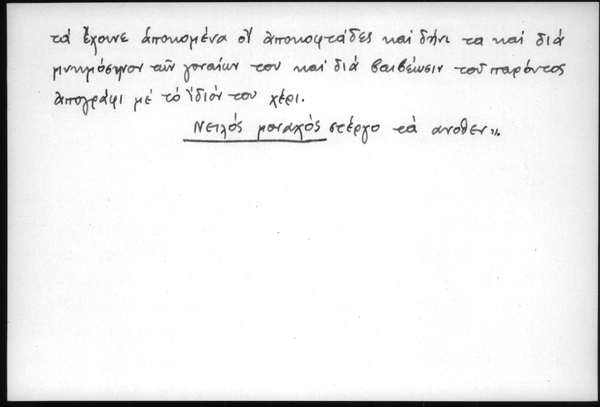 τά ἔχουνε ἀποκομένα οἱ ἀποκοφτάδες καί δήνι τα καί διά
μνημόσηνον τῶν γοναίων του καί διά βαιβέωσιν τοῦ παρόντος
ἀπογράφι μέ τό ἴδιόν του χέρι.
Νειλός μοναχός στέργο τά ανοθεν».